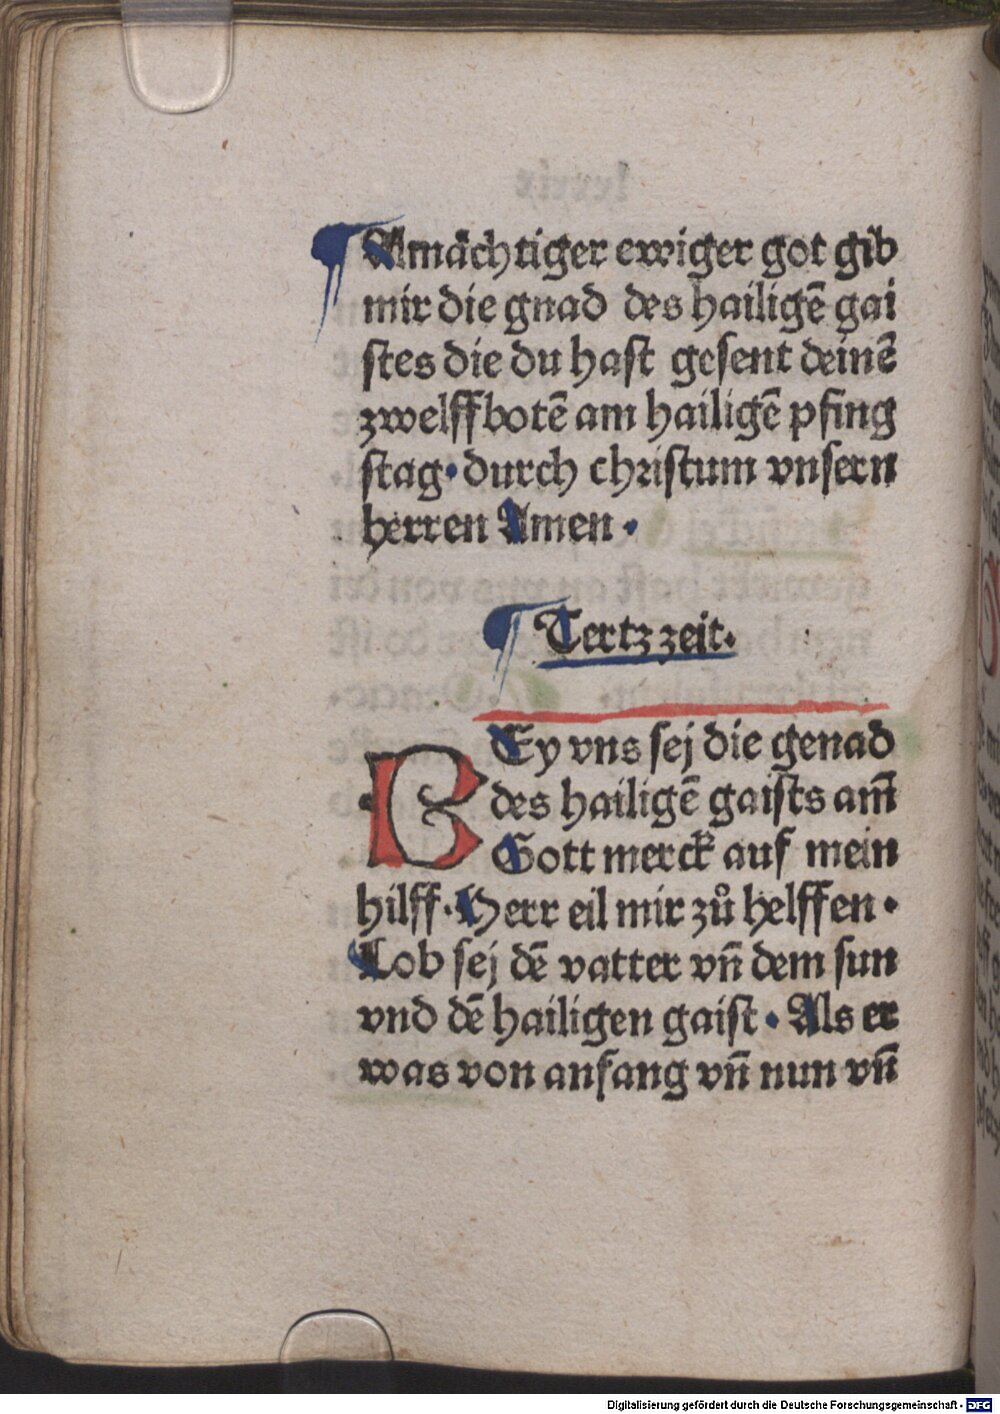 ¶ Almåchtiger ewiger got gib
mir die gnad des hailigē gai
stes die du hast gesent deinē
zwelffbotē am hailigē pfing
stag· durch christum vnsern
herren Amen ·
¶ Tertz zeit.
BEy vns sej die genad
des hailigē gaists am̄
Gott merck auf mein
hilff. Herr eil mir zů helffen ·
Lob sej dē vatter vn̄ dem sun
vnd dē hailigen gaist · Als er
was von anfang vn̄ nun vn̄
Digitalisierung gefördert durch die Deutsche Forschungsgemeinschaft - DFG